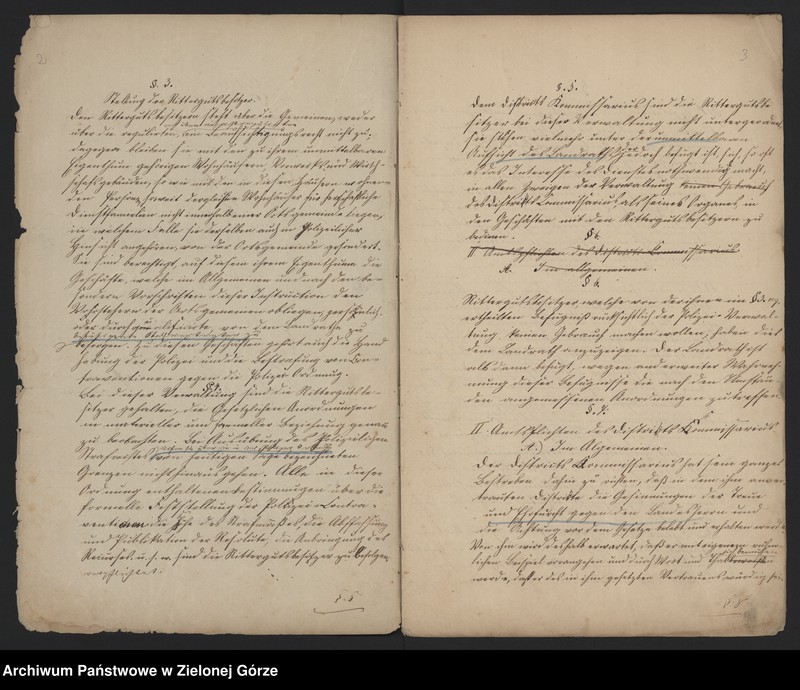 2
§. 3.
Stellung der Rittergutsbesitzer.
Den Rittergutsbesitzern steht über die Gemeinen, weder
über die regulirten, ein Beaufsichtigungsrecht nicht zu,
dagegen bleiben sie mit den zu ihrem unmittelbaren
Eigenthum gehörigen Wohnhäusern Vorwerks und Wirth-
schaftsgebäuden, so wie mit den in diesen Häusern wohnen-
den Personen, soweit dergleichen Wohnhäuser für herrschaftliche
Dienstfamilien nicht innerhalb einer Ortsgemeinde liegen,
in welchem Falle sie derselben auch in Polizeilicher
Hinsicht angehören, von der Ortsgemeinde gesondert.
Sie sind berechtigt, auf diesem ihrem Eigenthum die
Geschäfte, welche im Allgemeinen und nach den be-
sondern Vorschriften dieser Instruction den
Vorstehern der Ortsgemeinen obliegen, persönlich
oder durch qualificirte, von dem Landrathe
zu
besorgen. Zu diesen Geschäften gehört auch die Hand
habung der Polizei und die Bestrafung von Con-
traventionen gegen die Polizei Ordnung.
Bei dieser Verwaltung sind die Rittergutsbe-
sitzer gehalten, die Gesetzlichen Anordnungen
in materieller und formeller Beziehung genau
zu beobachten. Bei Ausübung des Polizeilichen
Strafrechts
bezeichneten
Grenzen nicht hinausgehen. Alle in dieser
Ordnung enthaltenen Bestimmungen über die
formelle Feststellung der Polizei Contra-
ventionen die Höhe des Strafmaßes, die Abfassung
und Publikation der Resolute, die Anbringung des
Recurses u. s. w. sind die Rittergutsbesitzer zu befolgen
verpflichtet.
§. 5
3
§. 5.
Dem Districts Kommissarius sind die Rittergutsbe
sitzer bei dieser Verwaltung nicht untergeordnet,
sie stehen vielmehr unter der unmittelbaren
Aufsicht des Landraths, der jedoch befugt ist, sich, so oft
es das Interesse des Dienstes nothwendig macht,
in allen Zweigen der Verwaltung
des Distrikts Kommissarius als seines Organes, in
den Geschäften mit den Rittergutsbesitzern zu
bedienen.
§ 6.
II Amtspflichten des Districts Kommissarius
A. Im allgemeinen.
§ 6.
Rittergutsbesitzer welche von der ihnen im §
ertheilten Befugniß rücksichtlich der Polizei-Verwal-
tung keinen Gebrauch machen wollen, haben dies
dem Landrath anzuzeigen. Der Landrath ist
alsdann befugt, wegen anderweiter Wahrneh-
mung dieser Befugnisse die nach den Umstän-
den angemessenen Anordnungen zu treffen.
§. 7.
II. Amtspflichten des Districts Kommissarius
A.) Im Algemeinen.
Der Districts Kommissarius hat sein ganzes
Bestreben dahin zu richten, daß in dem ihm anver-
trauten Districte die Gesinnungen der Treue
und Ehrfurcht gegen den Landesherrn und
die Achtung vor dem Gesetze belebt und erhalten werde
Von ihm wird deshalb erwartet, daß er mit eigenem rühm-
lichen Beispiel vorangehen und durch Wort und That
werde, daß er des in ihn gesetzten Vertrauens würdig sei.
§ 8.
Archiwum Państwowe w Zielonej Górze